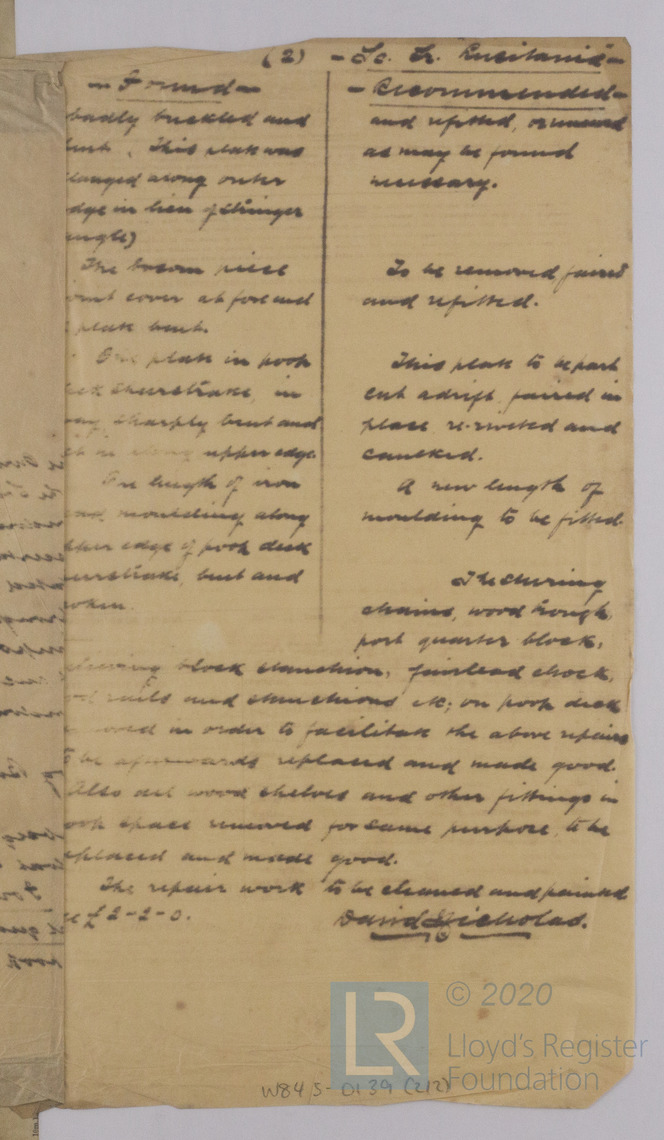 (2) - Sc. Tr. Lusitania -
- Found -
badly buckled and
bent. This plate was
flanged along outer
edge in lieu of stringer
angle)
The bosom piece
joint cover at fore end
plate bent.
One plate in poop
deck sheerstrake, in
way, sharply bent and
along upper edge.
One length of iron
moulding along
upper edge of poop deck
sheerstrake, bent and
broken.
- Recommended -
and refitted, or renewed
as may be found
necessary.
To be removed faired
and refitted.
This plate to be part
cut adrift, faired in
place, re-riveted and
caulked.
A new length of
moulding to be fitted.
The steering
chains, wood trough,
port quarter block,
steering block stanchion, fairlead chock,
rails and stanchions etc; on poop deck
removed in order to facilitate the above repairs
to be afterwards replaced and made good.
Also all wood shelves and other fittings in
poop space removed for same purpose, to be
replaced and made good.
The repair work to be cleaned and painted
£2-2-0.
David Nicholas.
LR
© 2020
Lloyd's Register
Foundation
W845-0139 (2/2)